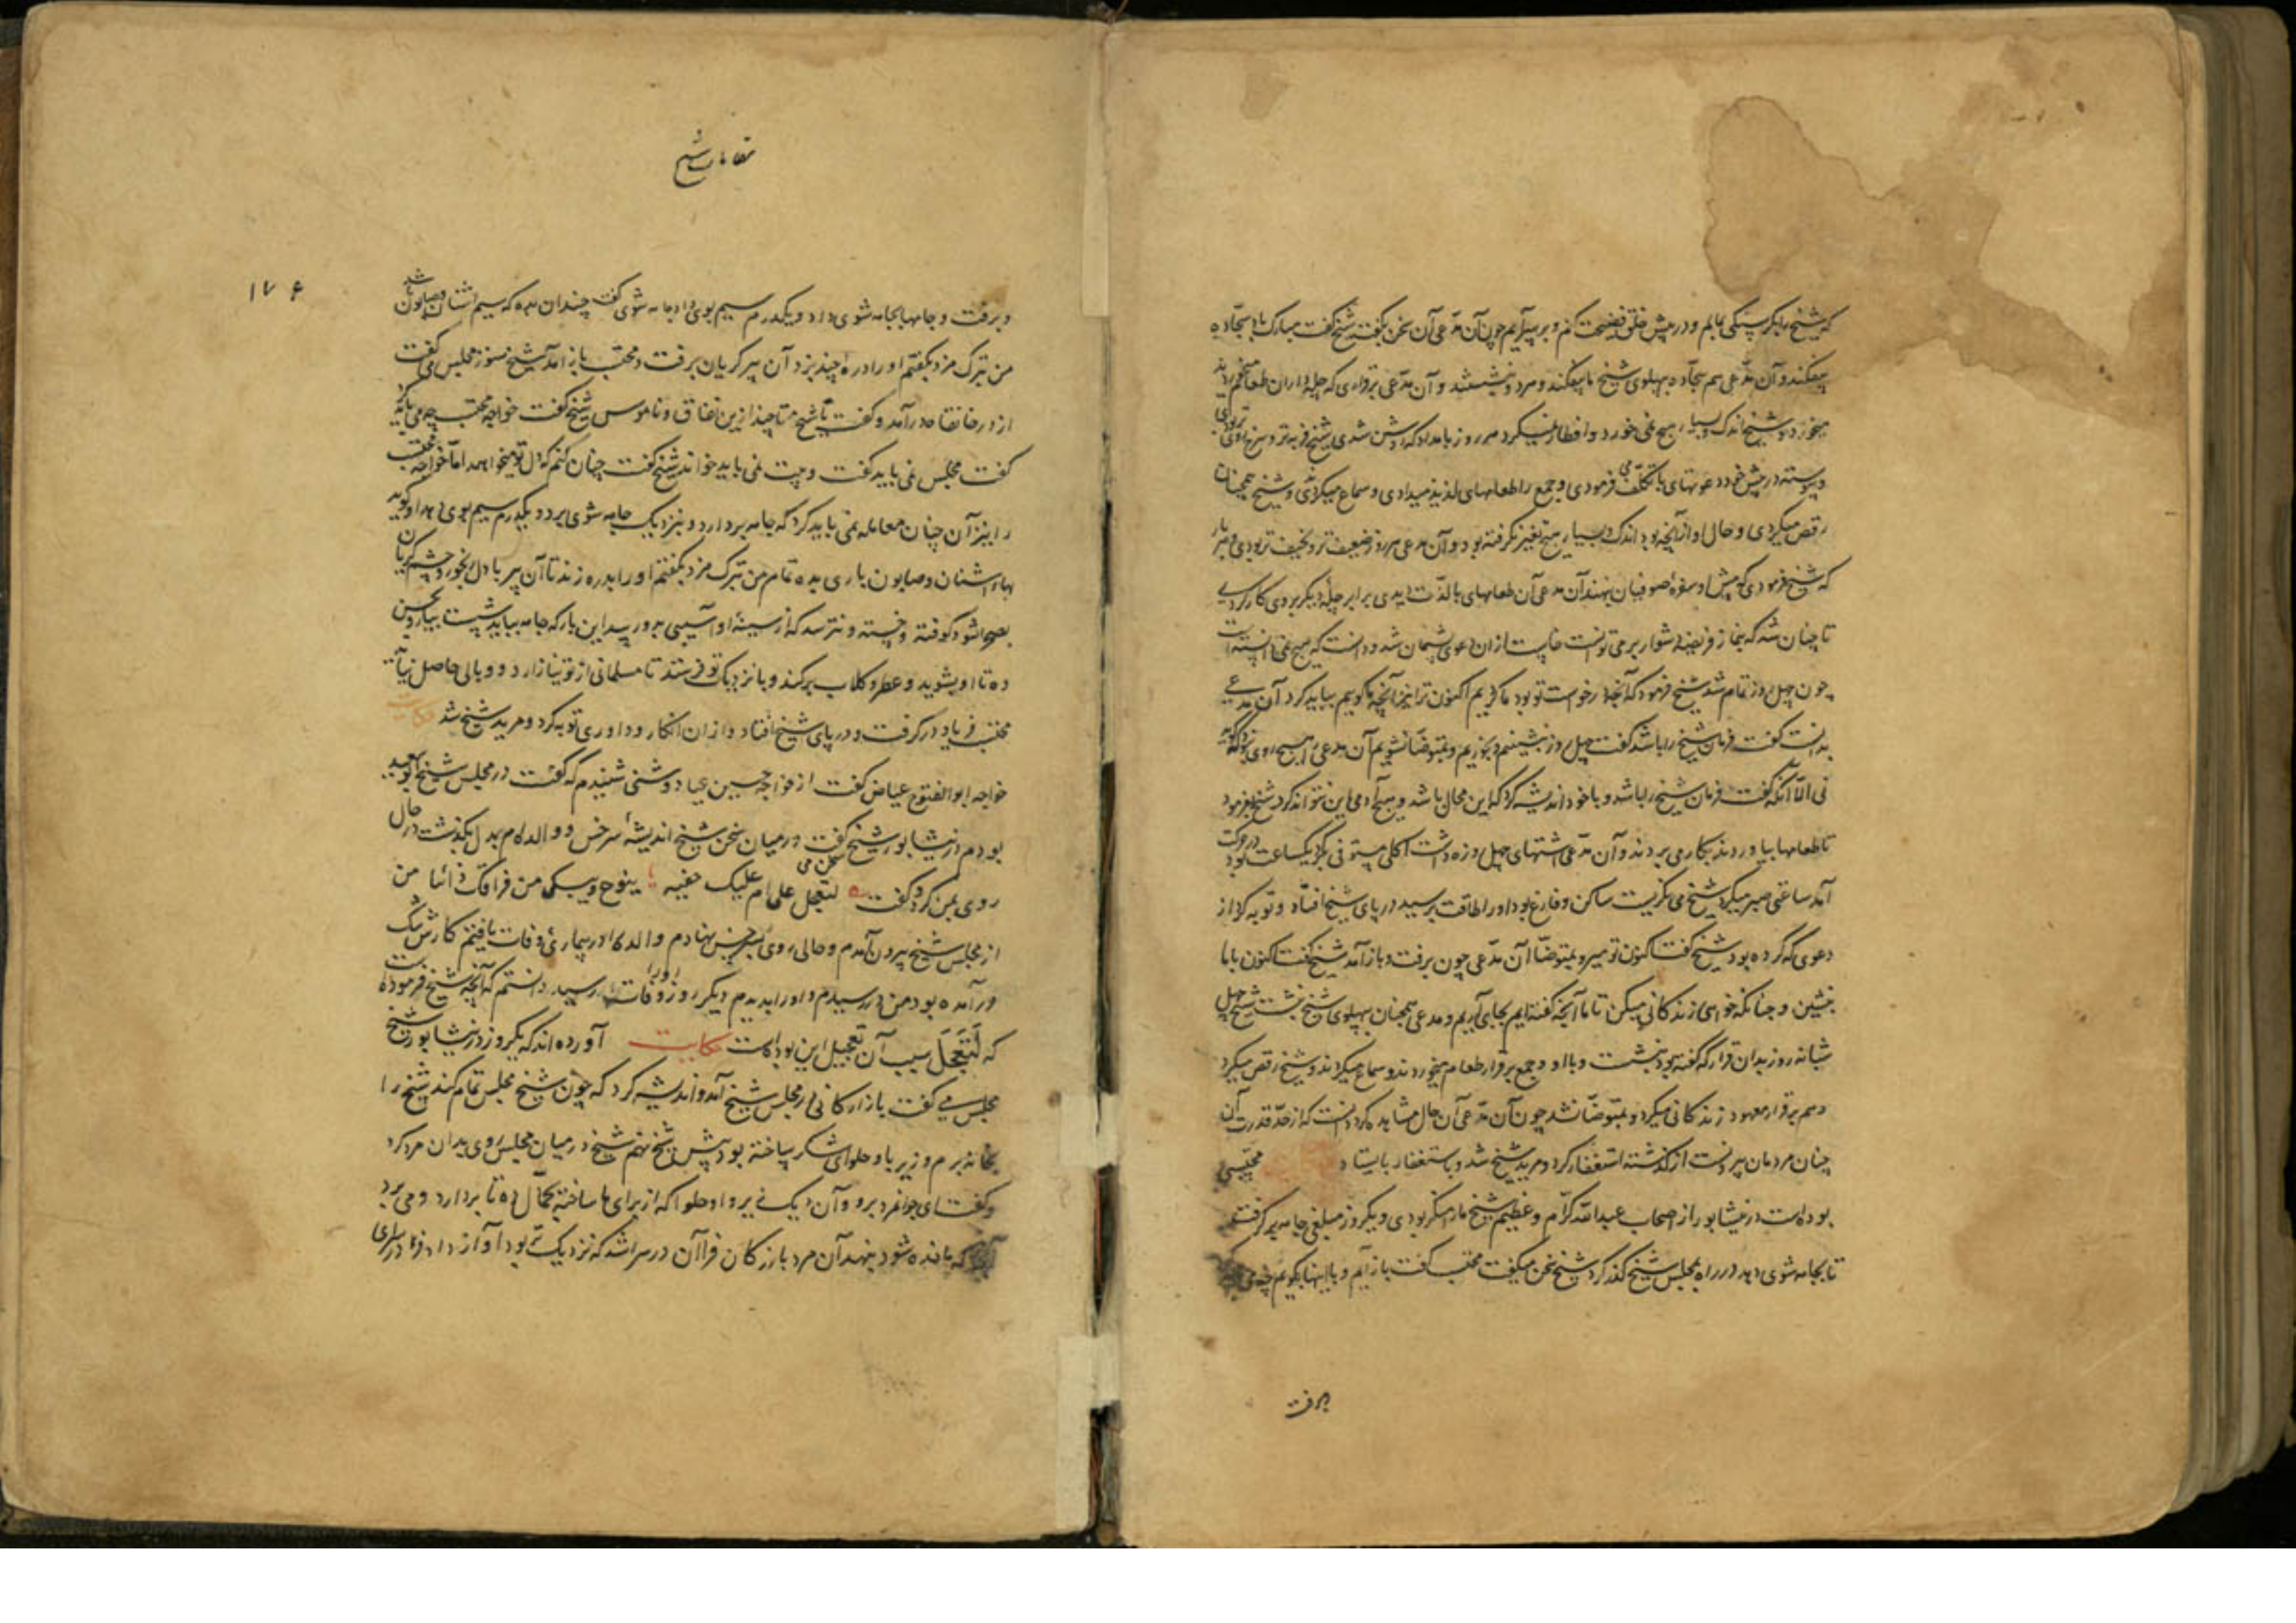 که شیخ را بگرسنگی بمالم و در پیش خلق فضیحت کنم و بر سر آریم چون آن مدعی آن سخن بگفت شیخ گفت مبارک باد سجاده
بیفکند و آن مدعی هم سجاده بپهلوی شیخ ما بیفکند و هر دو بنشستند و آن مدعی بر قراری که چله داران طعام خورند
میخورد و شیخ اندک و بسیار هیچ نمی خورد و افطار نمیکرد هر روز بامداد که روشن شدی شیخ فربه تر و سرخ تر بودی
و پیوسته در پیش خود دعوتهای با تکلف می فرمودی و جمع را طعامهای لذیذ میدادی و سماع میکردی و شیخ همچنان
رقص میکردی و حال او از آنچه بود اندک و بسیار هیچ تغیر نگرفته بود و آن مدعی هر روز ضعیف تر و نحیف تر بودی و هر بار
که شیخ فرمودی که پیش او سفرهٔ صوفیان بنهند آن مدعی آن طعامهای با لذت دیدی برابر چله دیگر بر وی کار کردی
تا چنان شد که نماز فریضه دشوار بر می توانست خاست از آن دعوی پشیمان شد و دانست که هیچ نمی دانسته است
چون چهل روز تمام شد شیخ فرمود که آنچه درخواست تو بود ما کردیم اکنون ترا نیز آنچه ما گوییم بباید کرد آن مدعی
گفت فرمان شیخ را باشد گفت چهل روز بنشینیم و بخوریم و بمتوضا نشویم آن مدعی را هیچ روی نبود که گوید
نی الا آنکه گفت فرمان شیخ را باشد و با خود اندیشه کرد که این محال باشد و هیچ آدمی این نتواند کرد شیخ بفرمود
تا طعامها بیاوردند بکار می بردند و آن مدعی اشتهای چهل روزه داشت اکلی مستوفی بکرد یکساعت بود در حرکت
آمد ساعتی صبر میکرد شیخ می نگریست ساکن و فارغ بود او را طاقت برسید در پای شیخ افتاد و توبه کرد از
دعوی که کرده بود شیخ گفت اکنون تو میرو بمتوضا آن مدعی چون برفت و باز آمد شیخ گفت اکنون با ما
بنشین و چنانکه خواهی زندگانی میکن تا ما آنچه گفته ایم بجای آریم و مدعی همچنان بپهلوی شیخ بنشست شیخ چهل
شبانه روز بدان قرار که گفته بود بنشست و با او و جمع بر قرار طعام میخوردند و سماع میکردند و شیخ رقص میکرد
و هم بر قرار معهود زندگانی میکرد و بمتوضا نشد چون آن مدعی آن حال مشاهده کرد دانست که از حد قدرت آن
چنان مردمان بیرونست از گذشته استغفار کرد و مرید شیخ شد و باستغفار بایستاد محتسبی
بوده است در نیشابور از اصحاب عبدالله کرام و عظیم شیخ ما را منکر بودی و یکروز مبلغی جامه بر گرفت
تا بجامه شوی دهد در راه بمجلس شیخ گذر کرد شیخ سخن میگفت محتسب گفت باز آیم و با اینها بگویم چه می
برفت
مقامات شیخ
۱۷۶
و برفت و جامها بجامه شوی داد و یکدرم سیم بوی داد جامه شوی گفت چندان بده که سیم اشنان و صابون باشد
من بترک مزد بگفتم او را درهٔ چند بزد آن پیر گریان برفت و محتسب باز آمد شیخ هنوز مجلس می گفت
از در خانقاه درآمد و گفت یا شیخ تا چند ازین نفاق و ناموس شیخ گفت خواجه محتسب چه می باید
گفت مجلس نمی باید گفت و بیت نمی باید خواند شیخ گفت چنان کنم که دل تو میخواهد اما خواجه محتسب
را نیز آن چنان معامله نمی باید کرد که جامه بردارد و بنزدیک جامه شوی برد و یکدرم سیم بوی دهد او گوید
بهاء اشنان و صابون باری بده تمام من بترک مزد بگفتم او را بدره زند تا آن پیر با دل رنجور و چشم گریان
بصحرا شود کوفته و خسته و نترسد که از سینهٔ او آسیبی بدو رسد این بار که جامه بباید شست بیار و بحسن
ده تا او بشوید و عطر و گلاب برکند و با نزدیک تو فرستد تا مسلمانی از تو نیازارد و وبالی حاصل نیاید
محتسب فریاد در گرفت و در پای شیخ افتاد و از آن انکار و داوری توبه کرد و مرید شیخ شد حکایت
خواجه ابوالفتوح عیاض گفت از خواجه حسین عیاد دوشنی شنیدم که گفت در مجلس شیخ ابوسعید
بودم در نیشابور شیخ سخن می گفت در میان سخن شیخ اندیشهٔ سرخس و والده ام بدل بگذشت در حال
روی بمن کرد و گفت لتعجل علی ام علیک حفیه ینوح ویبکی من فراقک دائبا من
از مجلس شیخ بیرون آمدم و حالی روی بسرخس نهادم والده را در بیماری وفات یافتم کارش تنگ
درآمده بود من در رسیدم و او را بدیدم دیگر روز او را وفات رسید دانستم که آنچه شیخ فرموده است
که لَتَعجَل سبب آن تعجیل این بوده است حکایت آورده اند که یکروز در نیشابور شیخ
مجلس می گفت بازارگانی در مجلس شیخ آمد و اندیشه کرد که چون شیخ مجلس تمام کند شیخ را
بخانه برم و زیربا و حلوای شکر ساخته بود پیش شیخ نهم شیخ در میان مجلس روی بدان مرد کرد
و گفت ای جوانمرد برو و آن دیک زیروا و حلوا که از برای ما ساختهٔ بحمال ده تا بردارد و می برد
آنجا که مانده شود بنهد آن مرد بازرگان فرا آن در سرا شد که نزدیک تر بود آواز داد